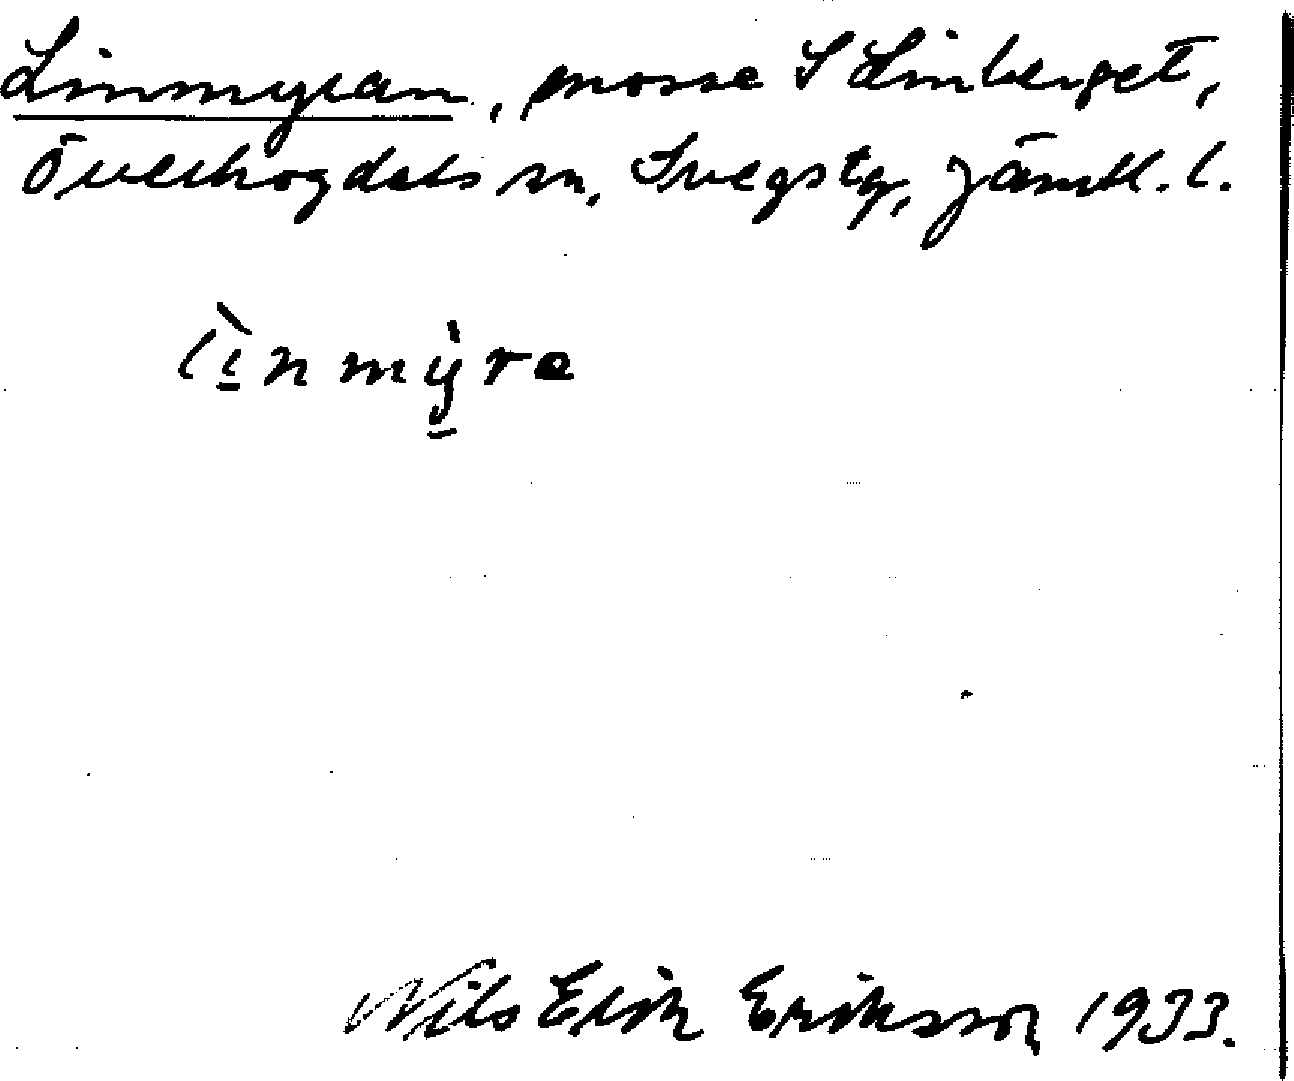 Linmyran, mosse S Linberget,
Överhogdals sn, Svegs tg, Jämtl. l.
lìnmỳre
Nils Erik Eriksson 1933.